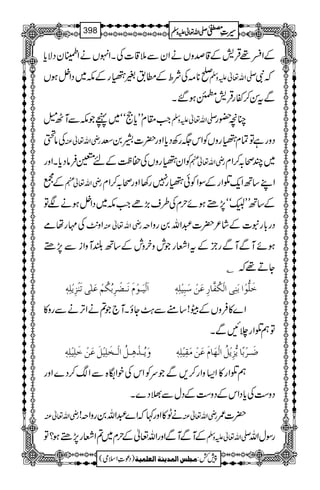 سیرتِ مصطفیٰ صلی اللہ تعالیٰ علیہ وسلم 398
کے افسر تھے قریش کے قاصدوں نے ان سے ملاقات کی۔ انہوں نے اطمینان دلایا
کہ نبی صلی اللہ تعالیٰ علیہ وسلم صلح نامہ کی شرط کے مطابق بغیر ہتھیار کے مکہ میں داخل ہوں
گے یہ سن کر کفارِ قریش مطمئن ہو گئے۔
چنانچہ حضور صلی اللہ تعالیٰ علیہ وسلم جب مقام ’’یاجج‘‘ میں پہنچے جو مکہ سے آٹھ میل
دور ہے تو تمام ہتھیاروں کو اس جگہ رکھ دیا اور حضرت بشیر بن سعد رضی اللہ تعالیٰ عنہ کی ماتحتی
میں چند صحابہ کرام رضی اللہ تعالیٰ عنہم کو ان ہتھیاروں کی حفاظت کے لئے متعین فرما دیا۔ اور
اپنے ساتھ ایک تلوار کے سوا کوئی ہتھیار نہیں رکھا اور صحابہ کرام رضی اللہ تعالیٰ عنہم کے مجمع
کے ساتھ ’’لبیک‘‘ پڑھتے ہوئے حرم کی طرف بڑھے جب مکہ میں داخل ہونے لگے تو
دربار نبوت کے شاعر حضرت عبداللہ بن رواحہ رضی اللہ تعالیٰ عنہ اونٹ کی مہار تھامے
ہوئے آگے آگے رجز کے یہ اشعار جوش و خروش کے ساتھ بلند آواز سے پڑھتے
جاتے تھے کہ
خَلُّوْا بَنِی الْکُفَّارِ عَنْ سَبِیْلِہٖ اَلْیَوْمَ نَضْرِبُکُمْ عَلٰی تَنْزِیْلِہٖ
اے کافروں کے بیٹو! سامنے سے ہٹ جاؤ۔ آج جو تم نے اترنے سے روکا
تو ہم تلوار چلائیں گے۔
ضَرْبًا یُّزِیْلُ الْھَامَ عَنْ مَقِیْلِہٖ وَیُذْھِلُ الْخَلِیْلَ عَنْ خَلِیْلِہٖ
ہم تلوار کا ایسا وار کریں گے جو سر کو اس کی خوابگاہ سے الگ کر دے اور
دوست کی یاد اس کے دوست کے دل سے بھلا دے۔
حضرت عمر رضی اللہ تعالیٰ عنہ نے ٹوکا اور کہا کہ اے عبداللہ بن رواحہ! رضی اللہ تعالیٰ عنہ
رسول اللہ صلی اللہ تعالیٰ علیہ وسلم کے آگے آگے اور اللہ تعالیٰ کے حرم میں تم اشعار پڑھتے ہو؟ تو
پیش کش: مجلس المدینۃ العلمیۃ (دعوتِ اسلامی)